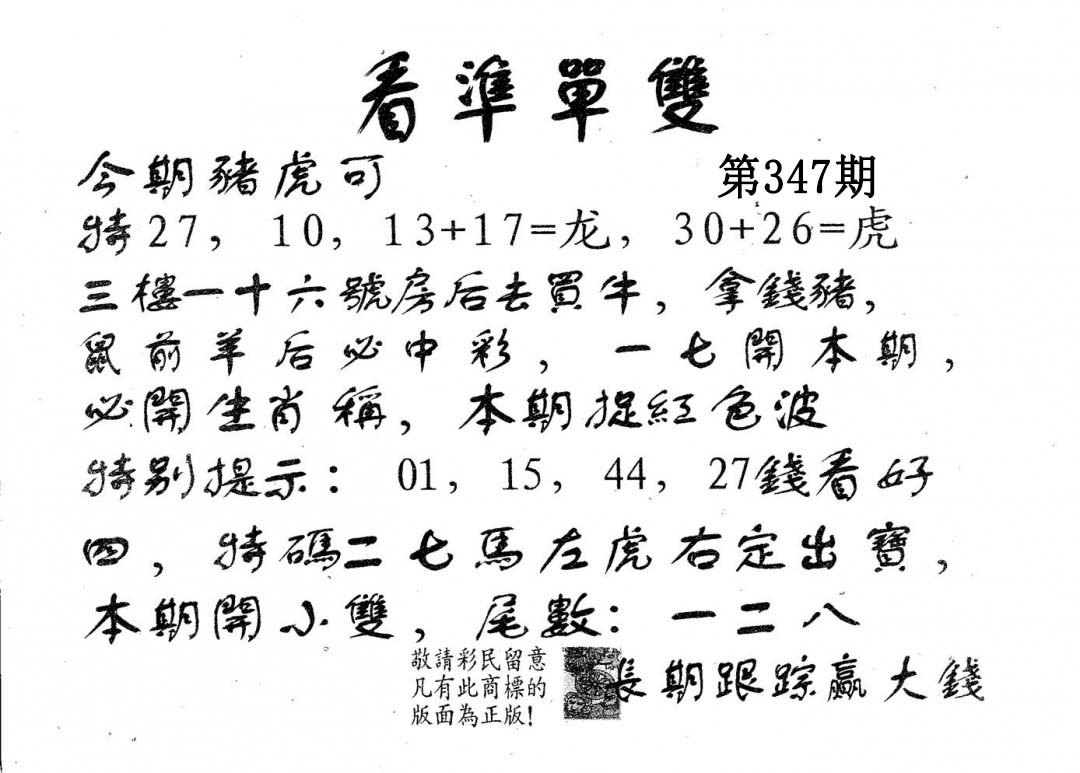 看準單雙
今期豬虎可
第347期
特27， 10， 13+17=龙， 30+26=虎
三樓一十六號房后去買牛，拿錢豬，
鼠前羊后必中彩，一七開本期，
必開生肖稱，本期捉紅色波
特别提示： 01， 15， 44， 27錢看好
四，特碼二七馬左虎右定出寶，
本期開小雙，尾數：一二八
敬請彩民留意
凡有此商標的
版面為正版！
長期跟踪贏大錢